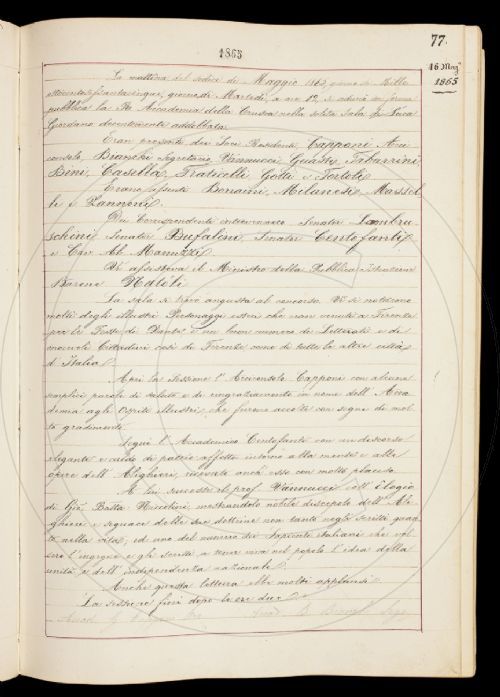 77.
1865
16 Mag.º
1865
La mattina del sedici di Maggio 1865, giorno di Mille
ottocentosessantacinque, giorno di Martedì, a ore 12, si adunò in forma
pubblica la R. Accademia della Crusca nella solita sala di Luca
Giordano decentemente addobbata.
Eran presenti dei Soci Residenti, Capponi Arci
consolo, Brunone Segretario, Vannucci, Guasti, Tabarrini,
Bini, Casella, Fraticelli, Gotti e Tortoli.
Erano assenti Bonaini, Milanesi, Marsel
li e Zannoni.
Dei Corrispondenti intervennero Senator Lambru
schini, Senator Bufalini, Senator Centofanti,
e Cav. Ab. Manuzzi.
Vi assisteva il Ministro della Pubblica Istruzione
Barone Natoli.
La sala si trovò angusta al concorso. Vi si notarono
molti degli illustri Personaggi esteri che eran venuti a Firenze
per le Feste di Dante e un buon numero di Letterati e di
onorevoli Cittadini così di Firenze come di tutte le altre città
d'Italia.
Aprì la Sessione l'Arciconsolo Capponi con alcune
semplici parole di saluto e di ringraziamento in nome dell'Acca
demia agli Ospiti illustri, che furono accolte con segni di mol
to gradimento.
Seguì l'Accademico Centofanti con un discorso
elegante e caldo di patrio affetto intorno alla mente e alle
opere dell'Alighieri, ricevuto anch'esso con molto plauso.
A lui successe il prof. Vannucci coll'elogio
di Gio. Batta Niccolini, mostrandolo nobile discepolo dell'Ali
ghieri e seguace delle sue dottrine non tanto negli scritti quan
to nella vita, ed uno del numero dei Sapienti italiani che vol
sero l'ingegno e gli scritti a tener viva nel popolo l'idea della
unità e dell'indipendenza nazionale.
Anche questa lettura ebbe molti applausi.
La sessione finì dopo le ore due.